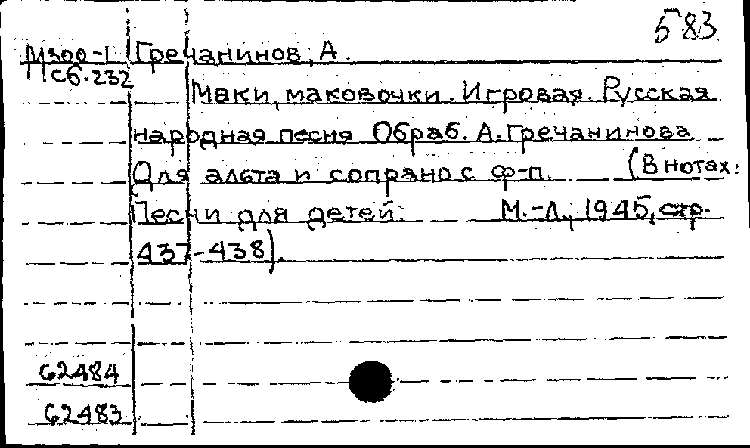 583
М300-1 Гречанинов, А.
Сб.232
Маки, маковочки. Игровая. Русская
народная песня Обраб. А.Гречанинова
Для альта и сопрано с ф-п. (В нотах:
Песни для детей. М.-Л., 1945, стр.
437-438).
62484
62483